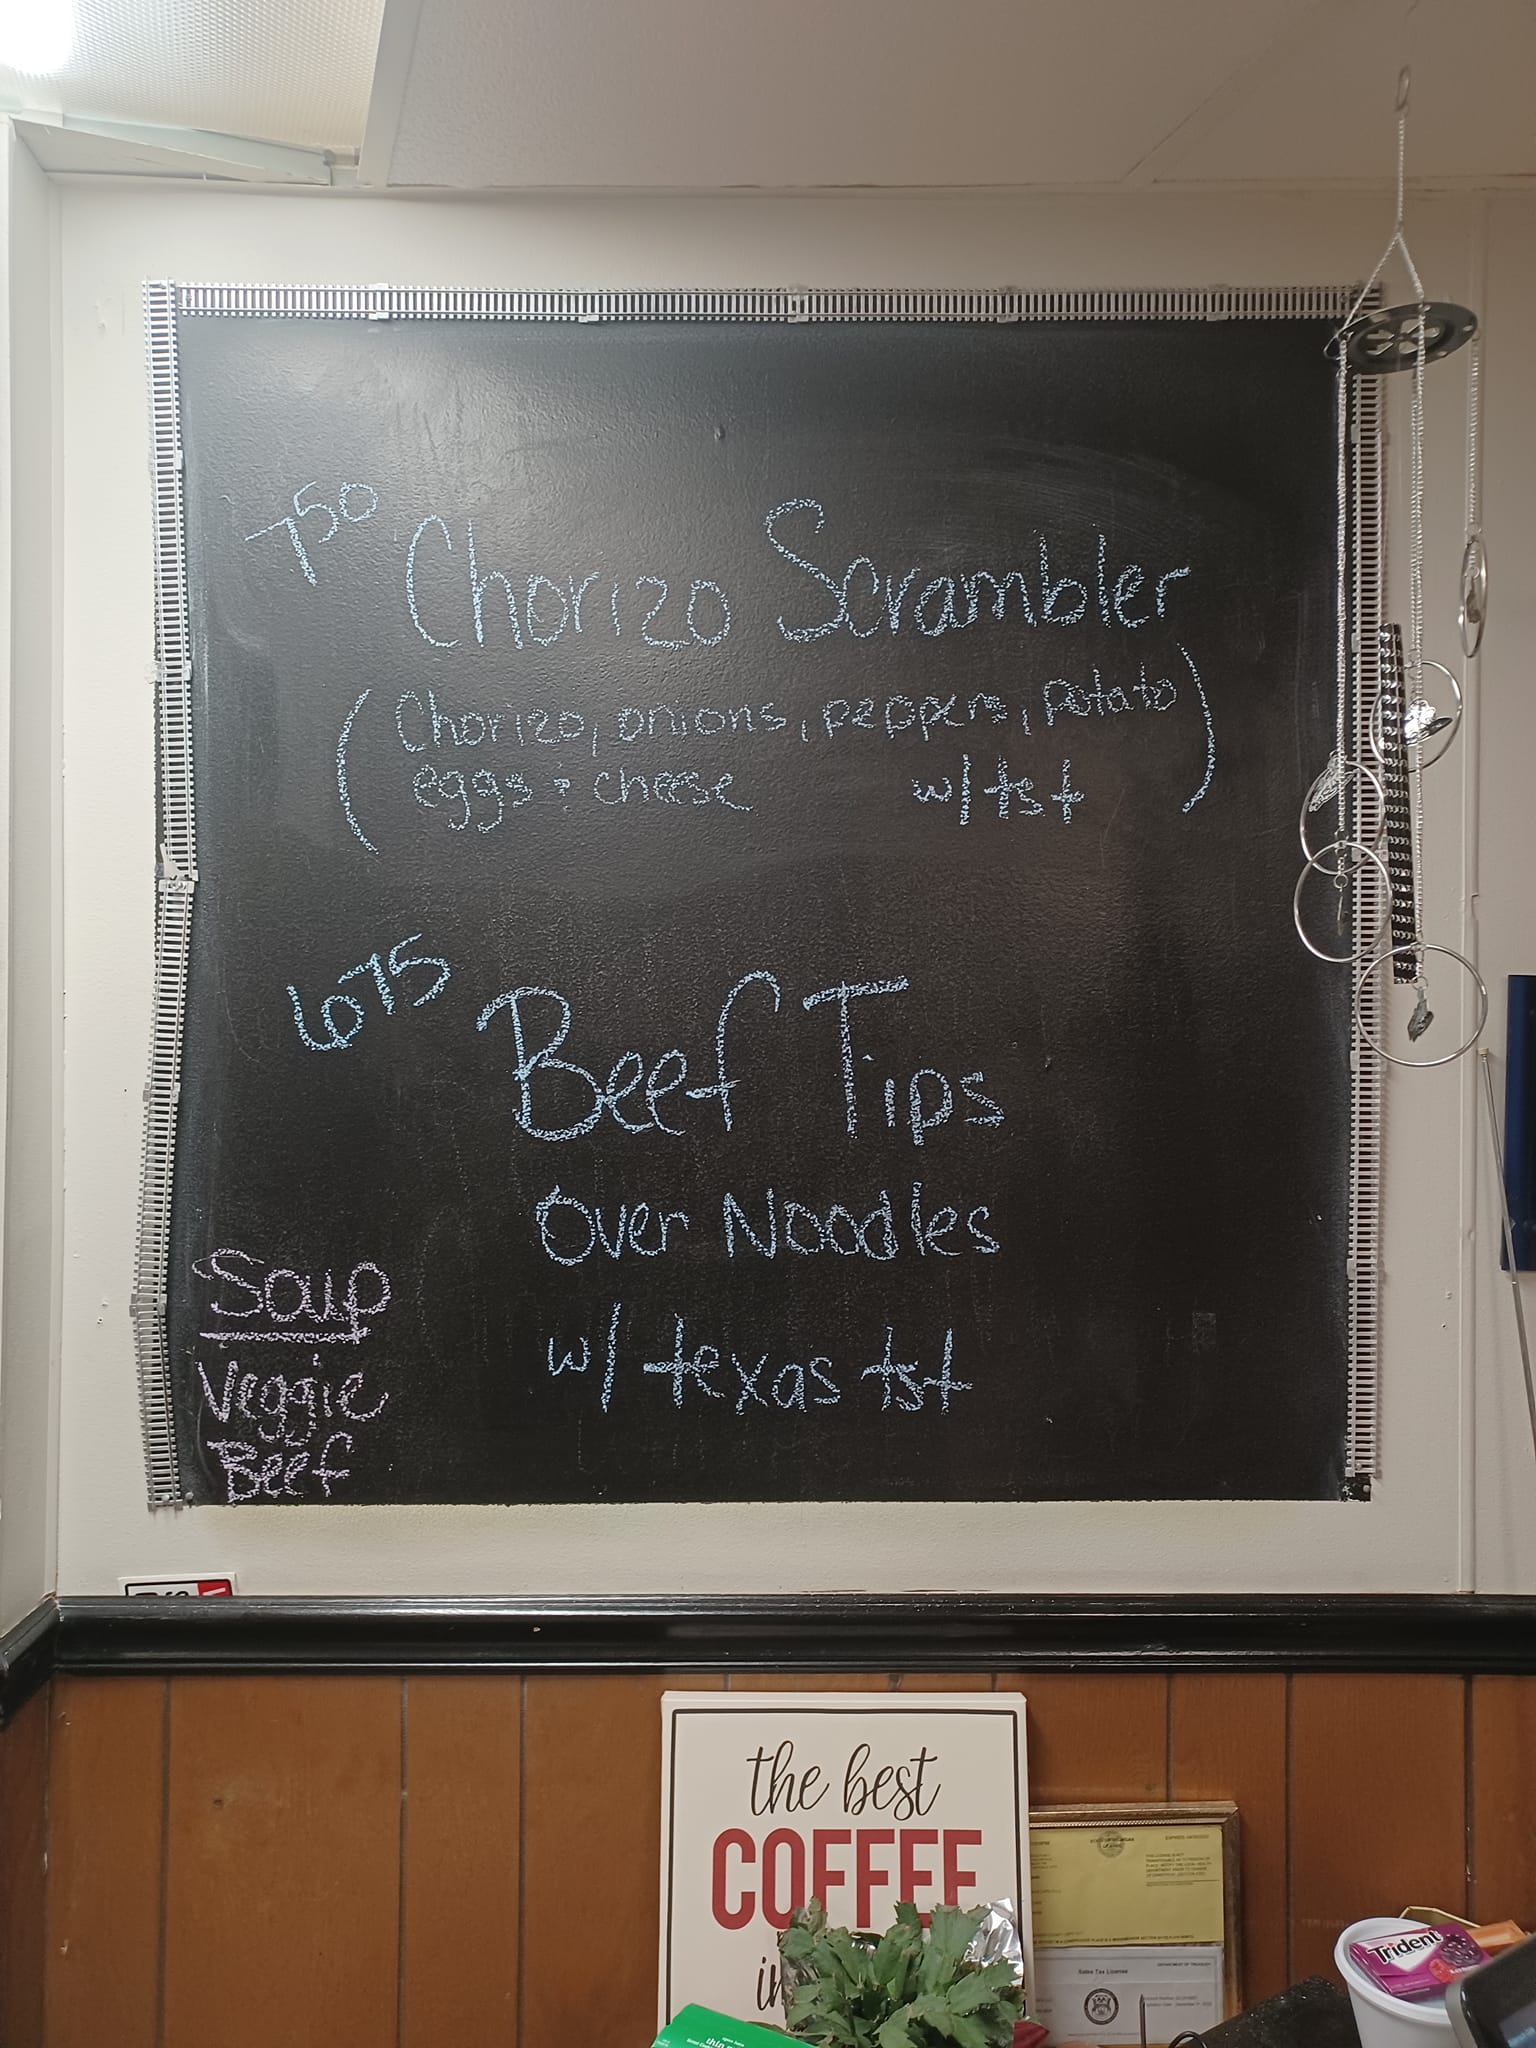 7 50
Chorizo Scrambler
(Chorizo, onions, peppers, potato
eggs & cheese w/ tst)
6 75
Beef Tips
Over Noodles
w/ texas tst
Soup
Veggie
Beef
the best
COFFEE
in
Sales Tax License
DEPARTMENT OF TREASURY
Trident